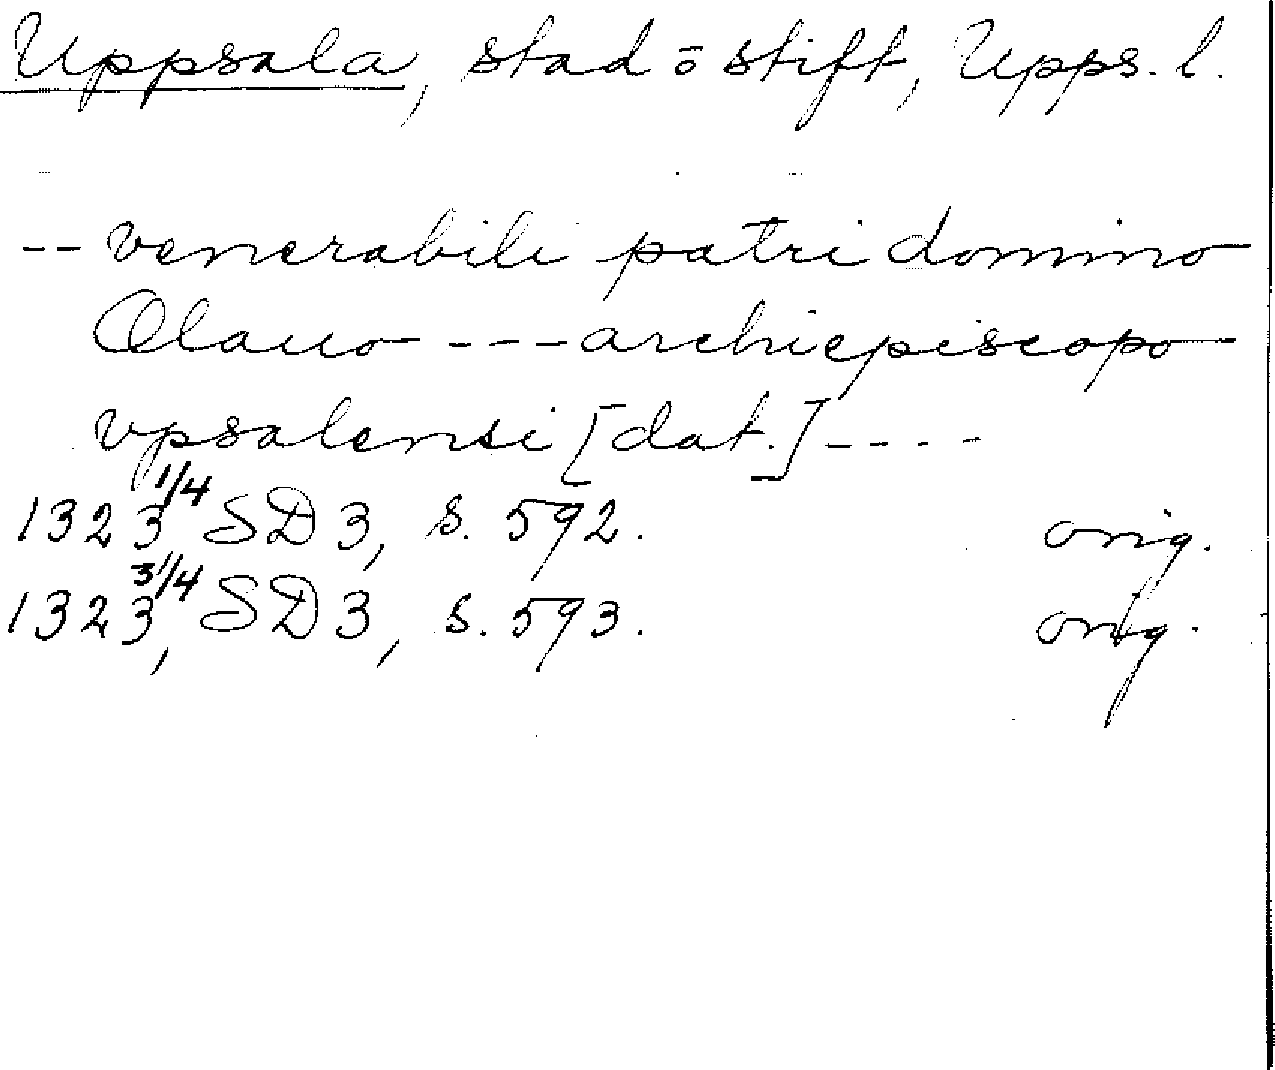 Uppsala, stad o stift, Upps. l.
-- venerabili patri domino
Olauo --- archiepiscopo
vpsalensi [dat.] ----
1323 1/4 SD 3, s. 592. orig.
1323, 3/4 SD 3, s. 593. orig.